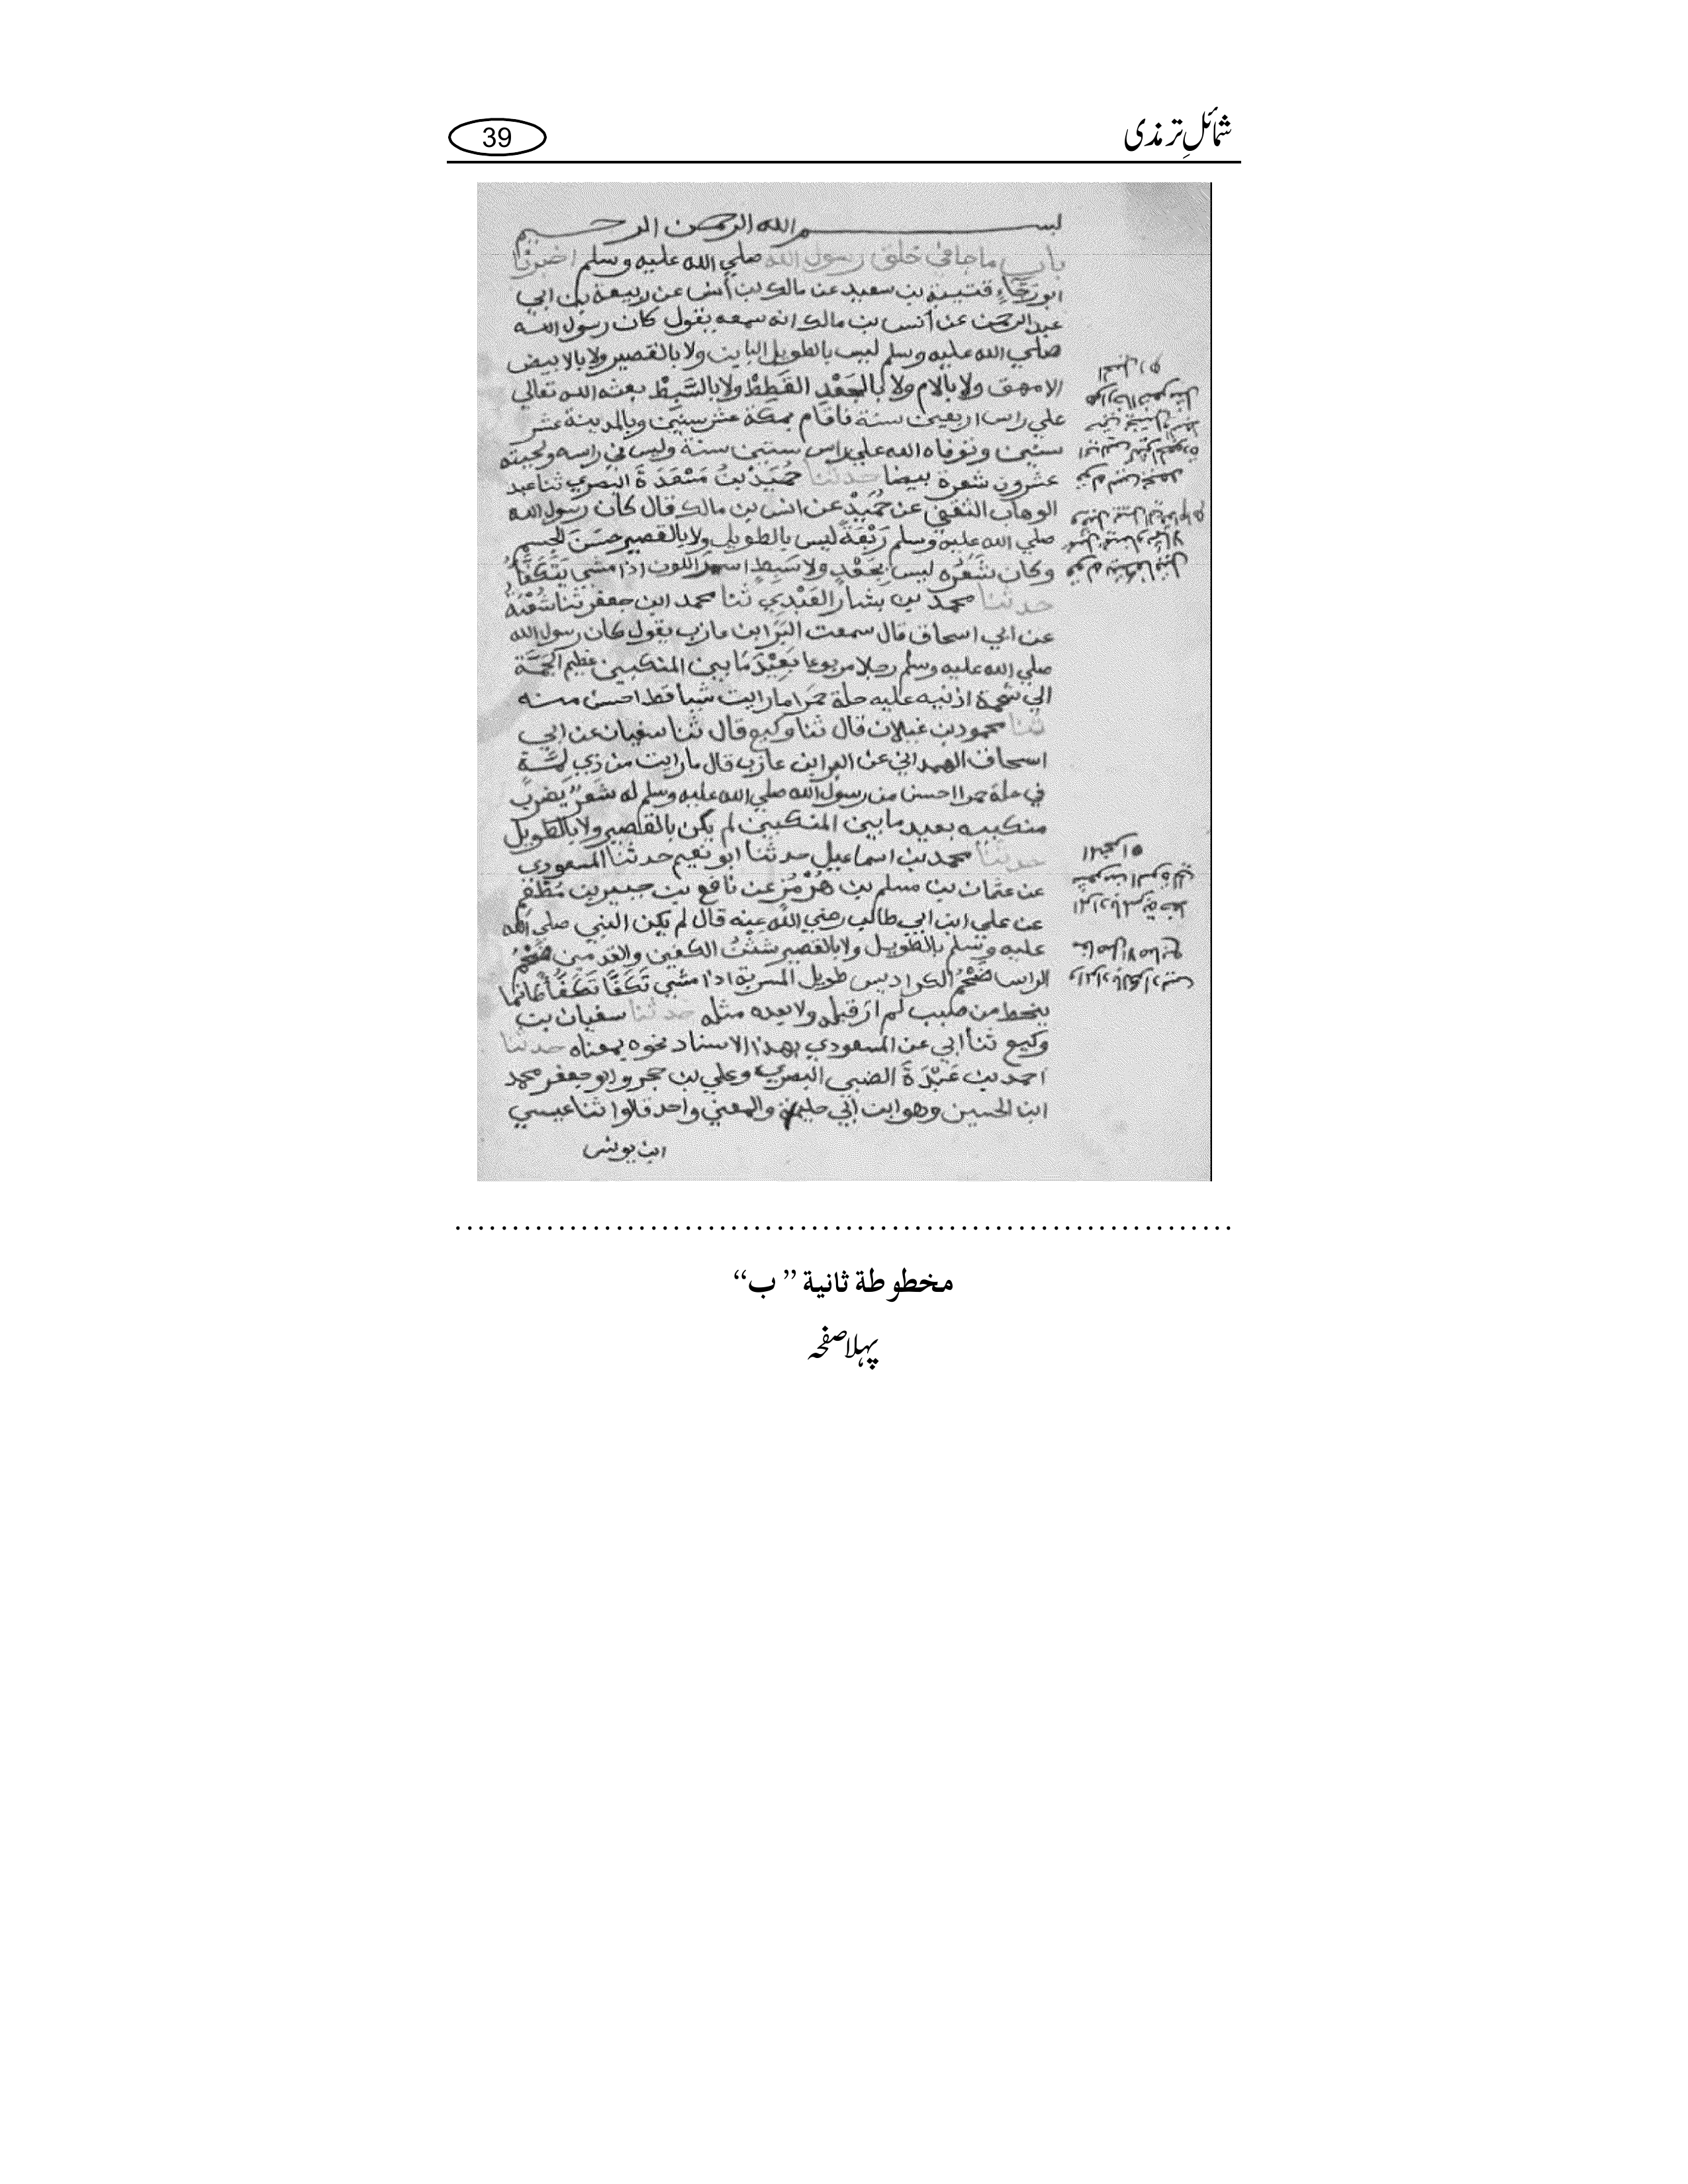 شمائلِ ترمذی
39
بسم الله الرحمن الرحيم
باب ما جا في خلق رسول الله صلي الله عليه وسلم اخبرنا
ابو رَجَاءٍ قتيبة بن سعيد عن مالك بن أنس عن ربيعة بن ابي
عبد الرحمن عن أنس بن مالك انه سمعه يقول كان رسول الله
صلي الله عليه وسلم ليس بالطويل الباين ولا بالقصير ولا بالابيض
الامهق ولا بالادم ولا بالجَعْدِ القَطِطْ ولا بالسَّبِطْ بعثه الله تعالي
علي راس اربعين سنة فاقام بمكة عشر سنين وبالمدينة عشر
سنين وتوفاه الله علي راس ستين سنة وليس في راسه ولحيته
عشرون شعرة بيضا حدثنا حُمَيْدُ بْنُ مَسْعَدَةَ البصري ثنا عبد
الوهاب الثقفي عن حُمَيْدْ عن انس بن مالك قال كان رسول الله
صلي الله عليه وسلم رَبْعَةً ليس بالطويل ولا بالقصير حسَنَ الجسم
وكان شَعْرُه ليس بجَعْدٍ ولا سَبِطٍ اسمرَ اللون اذا مشي يَتَكَفَّأُ
حدثنا محمد بن بشار العَبْدِي ثنا محمد ابن جعفر ثنا شُعْبَةُ
عن ابي اسحاق قال سمعت البَرَا بن عازب يقول كان رسول الله
صلي الله عليه وسلم رجلا مربوعا بَعِيْدَ مَا بين المنكبين عظيم الجُمَّة
الي شحمة اذنيه عليه حلة حمَرا ما رايت شيا قط احسن منه
ثنا محمود بن غيلان قال ثنا وكيع قال ثنا سفيان عن ابي
اسحاف الهمداني عن البرا بن عازب قال ما رايت من ذي لمَّة
في حلة حمرا احسن من رسول الله صلي الله عليه وسلم له شَعَرٌ يَضرِبُ
منكبيه بعيد ما بين المنكبين لم يكن بالقصير ولا بالطويل
حدثنا محمد بن اسماعيل حدثنا ابو نعيم حدثنا المسعودى
عن عثمان بن مسلم بن هُرْمُز عن نافع بن جبير بن مُطْعِم
عن علي ابن ابي طالب رضي الله عنه قال لم يكن النبي صلي الله
عليه وسلم بالطويل ولا بالقصير شَثْنُ الكفين والقدمين ضَخْمُ
الراس ضَخْمُ الكراديس طويل المسربة اذا مشي تَكَفَّأَ تَكَفُّأً كانما
ينحط من صبب لم ار قبله ولا بعده مثله حدثنا سفيان بن
وكيع ثنا أبي عن المسعودي بهذا الاسناد نحوه بمعناه حدثنا
احمد بن عَبْدَةَ الضبي البصري وعلي بن حجر وابو جعفر محمد
ابن الحسين وهو ابن أبي حليمة والمعني واحد قالوا ثنا عيسي
ابن يونس
مخطوطة ثانية ”ب“
پہلا صفحہ